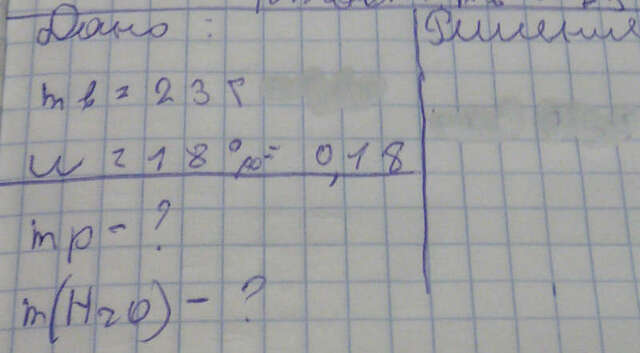 Дано:
Решение
mв = 23 г
w = 18% = 0,18
mр - ?
m(H2O) - ?